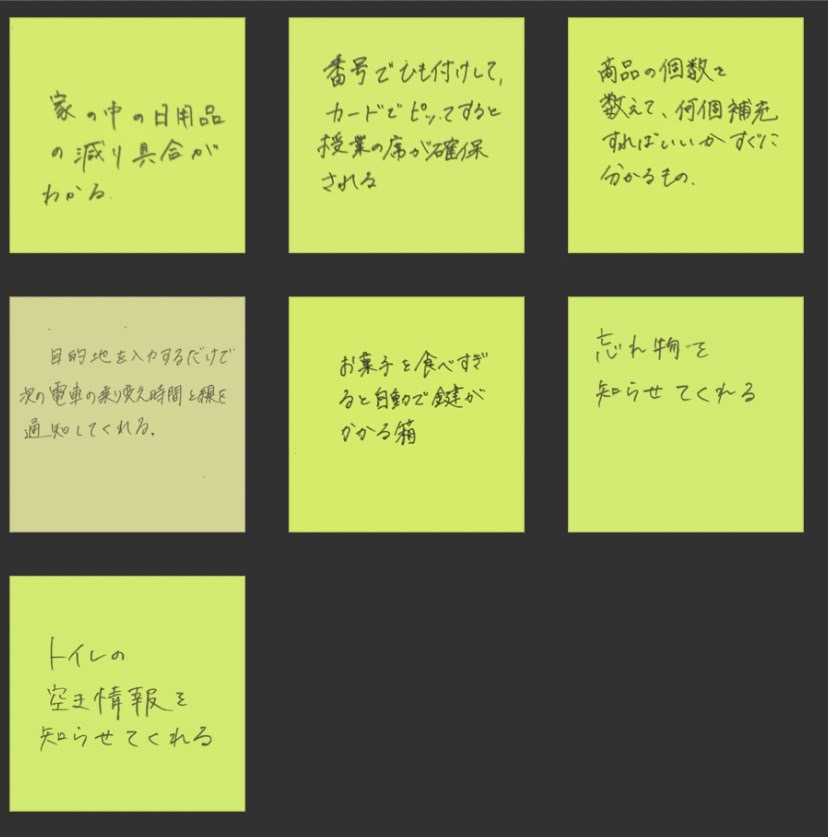 家の中の日用品
の減り具合が
わかる.
番号でひも付けして,
カードでピッてすると
授業の席が確保
される
商品の個数を
数えて、何個補充
すればいいかすぐに
分かるもの.
目的地を入力するだけで
次の電車の乗り変え時間と線を
通知してくれる.
お菓子を食べすぎ
ると自動で鍵が
かかる箱
忘れ物を
知らせてくれる
トイレの
空き情報を
知らせてくれる